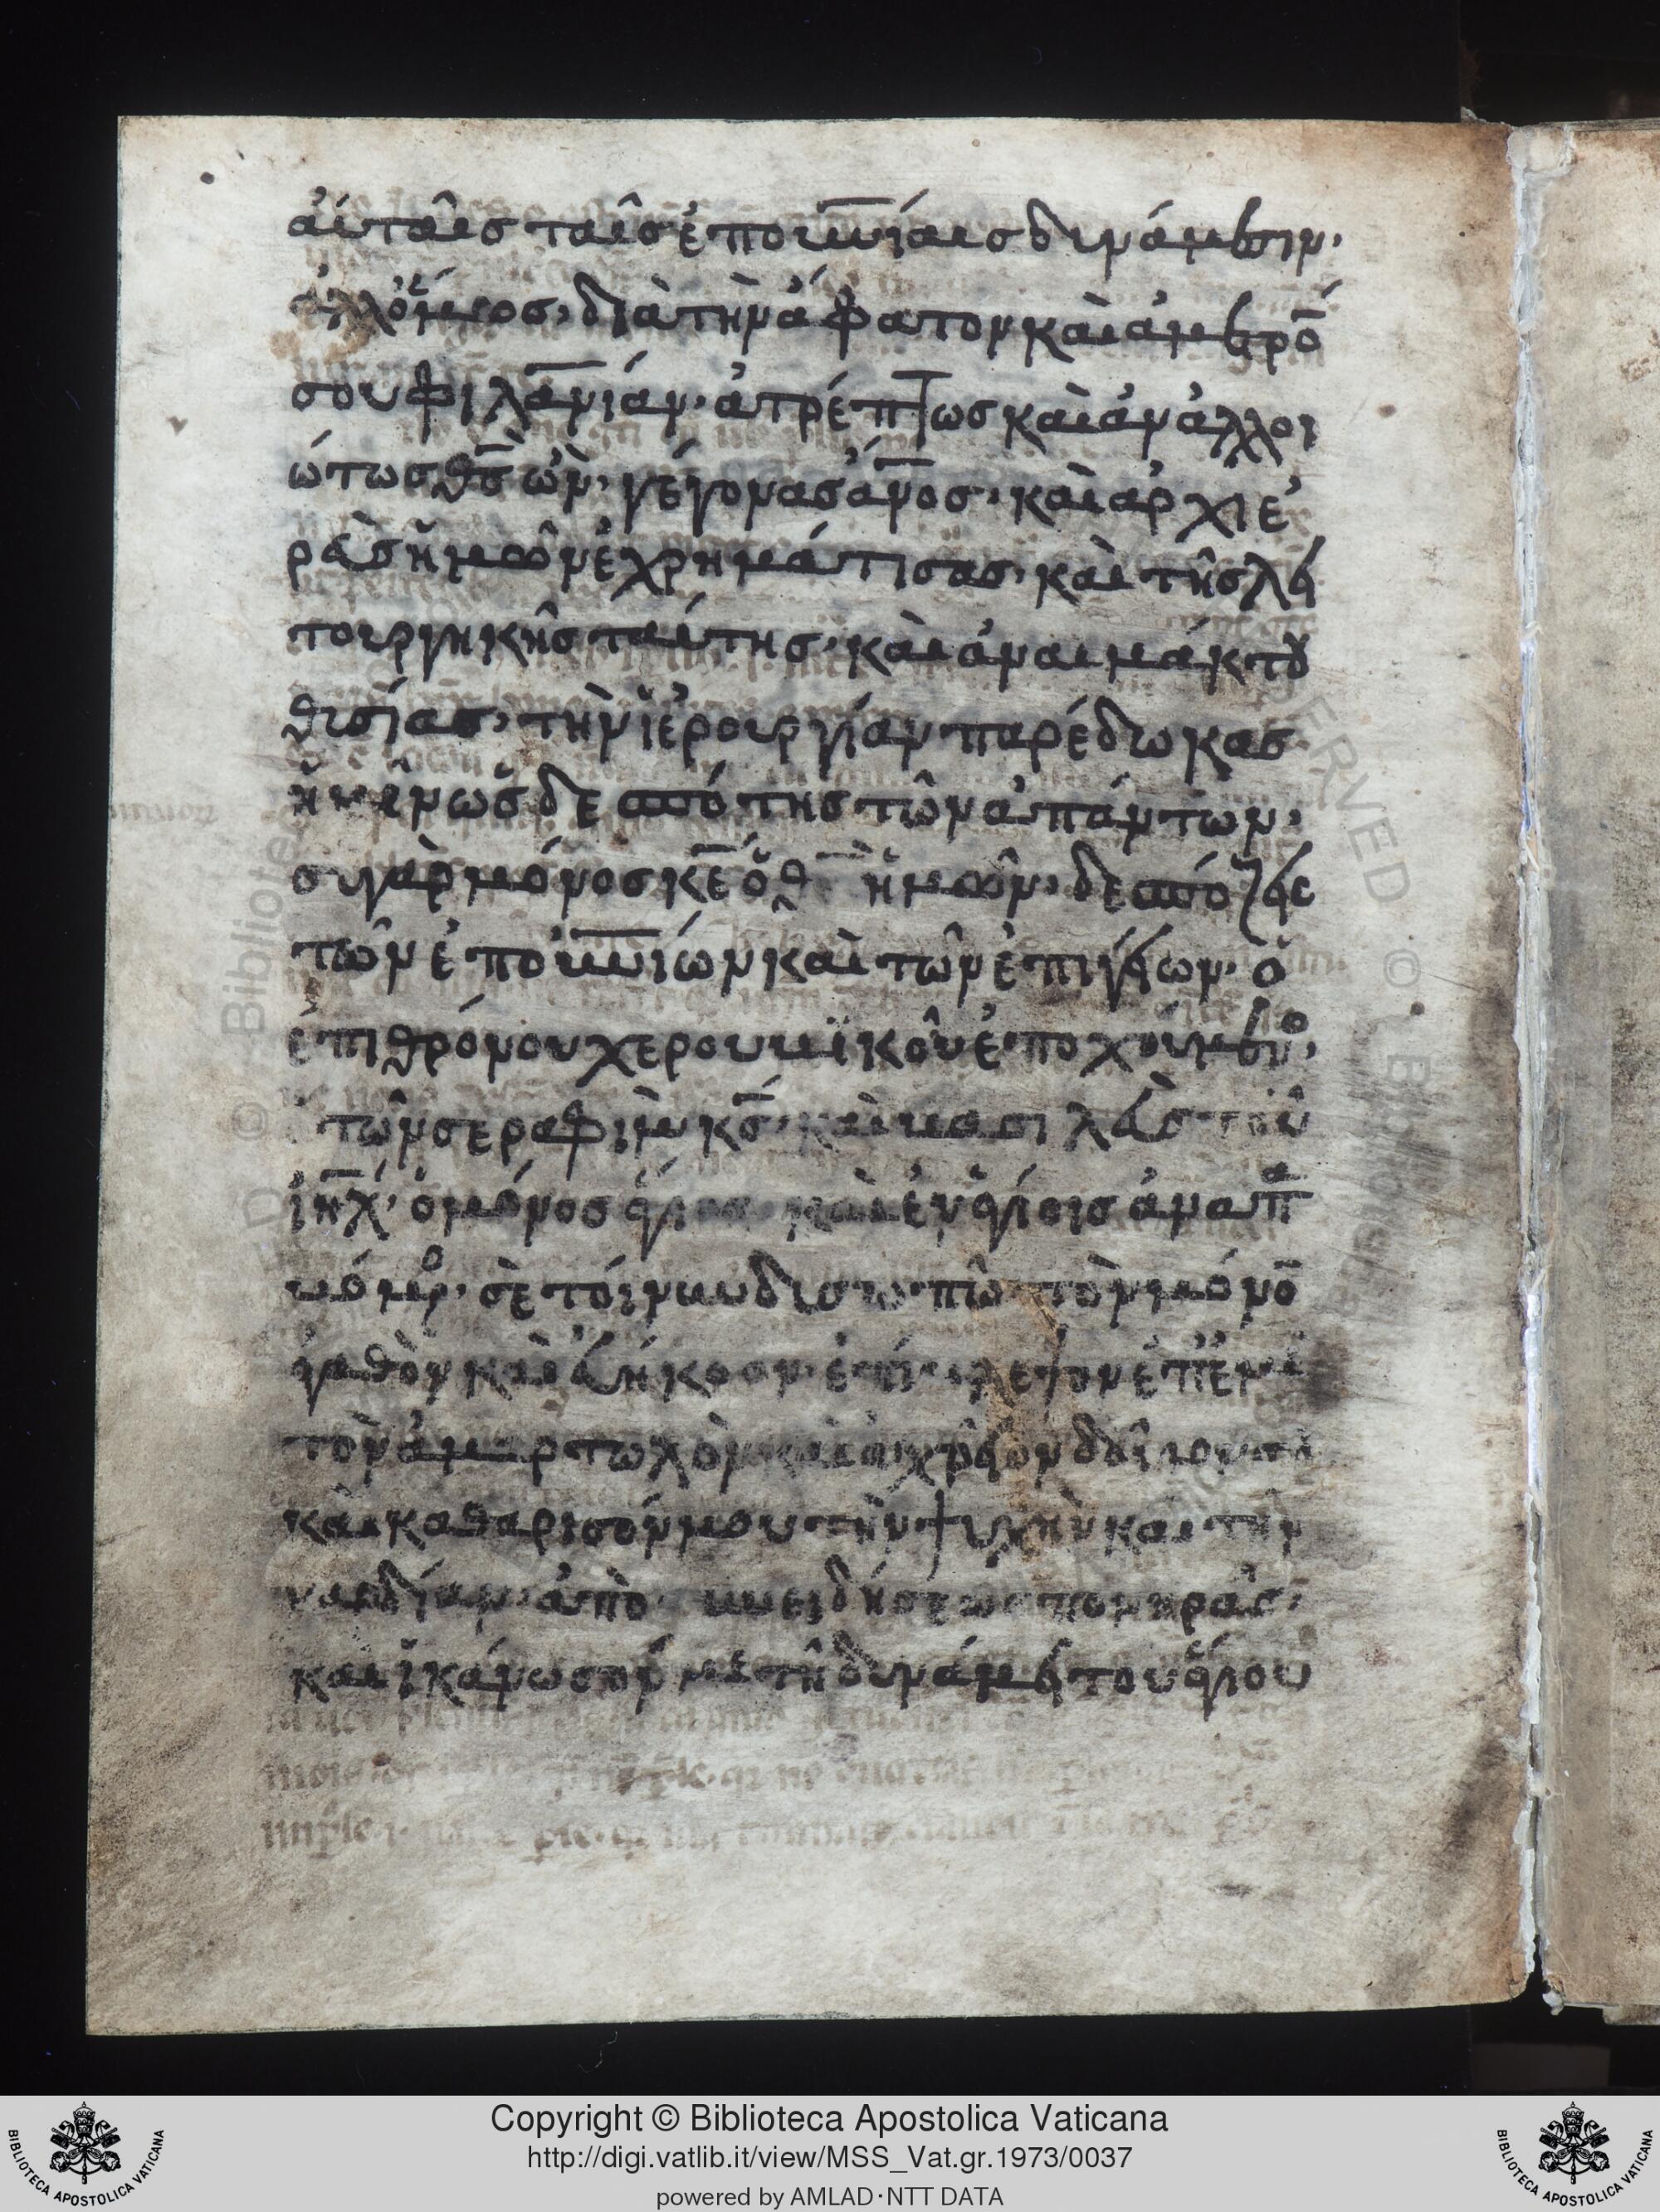 αὐταῖς ταῖς ἐπουνίαις δυνάμεσιν·
ἀλλ' ὅμως· διὰ τὴν ἄφατον καὶ ἀμετρό
σου φιλανίαν· ἀτρέπτως καὶ ἀναλλοι
ώτως θς ὢν· γέγονας ἄνος· καὶ ἀρχιε
ρεὺς ἡμῶν ἐχρημάτισας· καὶ τῆς λει
τουργηκῆς ταύτης· καὶ ἀναιμάκτου
θυσίας· τὴν ἱερουργίαν παρέδωκας
ἡμῖν ὡς δεσπότης τῶν ἁπάντων·
σὺ γὰρ μόνος κε ὁ θς ἡμῶν· δεσπόζεις
τῶν ἐπουνίων καὶ τῶν ἐπιγείων· ὁ
ἐπὶ θρόνου χερουβικοῦ ἐποχούμενος·
τῶν σεραφὶμ κς· καὶ βασιλεὺς τοῦ
ιηλ· ὁ μόνος ἅγιος καὶ ἐν ἁγίοις ἀναπ
υόμενος· σὲ τοίνυν δυσωπῶ τὸν μόνον
ἀγαθὸν καὶ εὐήκοον· ἐπίβλεψον ἐπ' ἐμὲ
τὸν ἁμαρτωλὸν καὶ ἀχρεῖον δοῦλον σου
καὶ καθαρισόν μου τὴν ψυχὴν καὶ τὴν
καρδίαν· ἀπὸ συνειδήσεως πονηρᾶς·
καὶ ἱκάνωσόν με τῇ δυνάμει τοῦ ἁγίου
Copyright © Biblioteca Apostolica Vaticana
http://digi.vatlib.it/view/MSS_Vat.gr.1973/0037
powered by AMLAD·NTT DATA